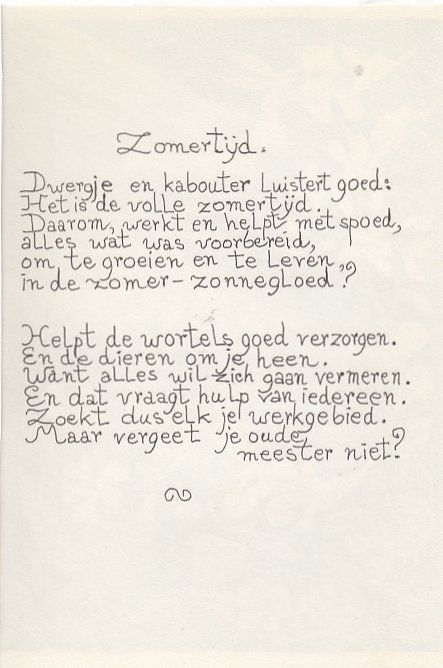 Zomertijd.
Dwergje en kabouter luistert goed:
Het is de volle zomertijd.
Daarom, werkt en helpt met spoed,
alles wat was voorbereid,
om te groeien en te leven,
in de zomer-zonnegloed?
Helpt de wortels goed verzorgen.
En de dieren om je heen.
Want alles wil zich gaan vermeren.
En dat vraagt hulp van iedereen.
Zoekt dus elk je werkgebied.
Maar vergeet je oude,
meester niet?